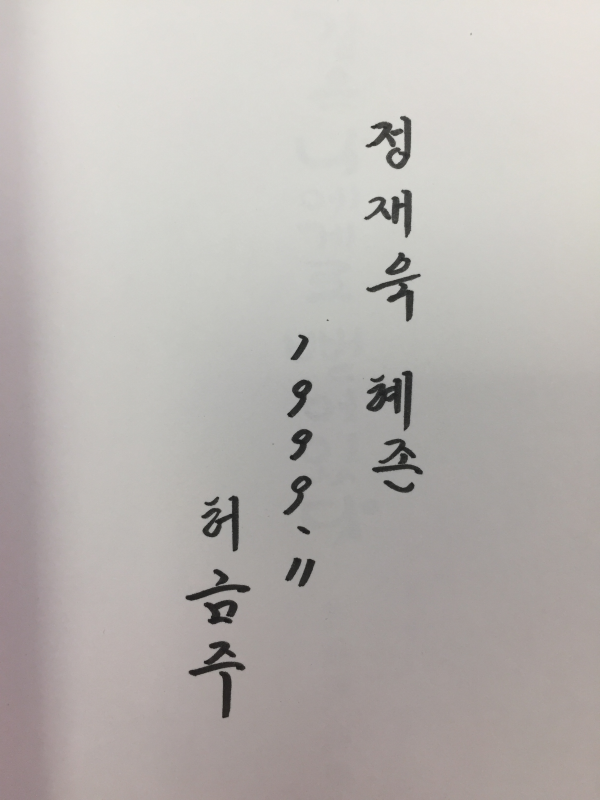 정재욱 혜존
1999. 11
허금주